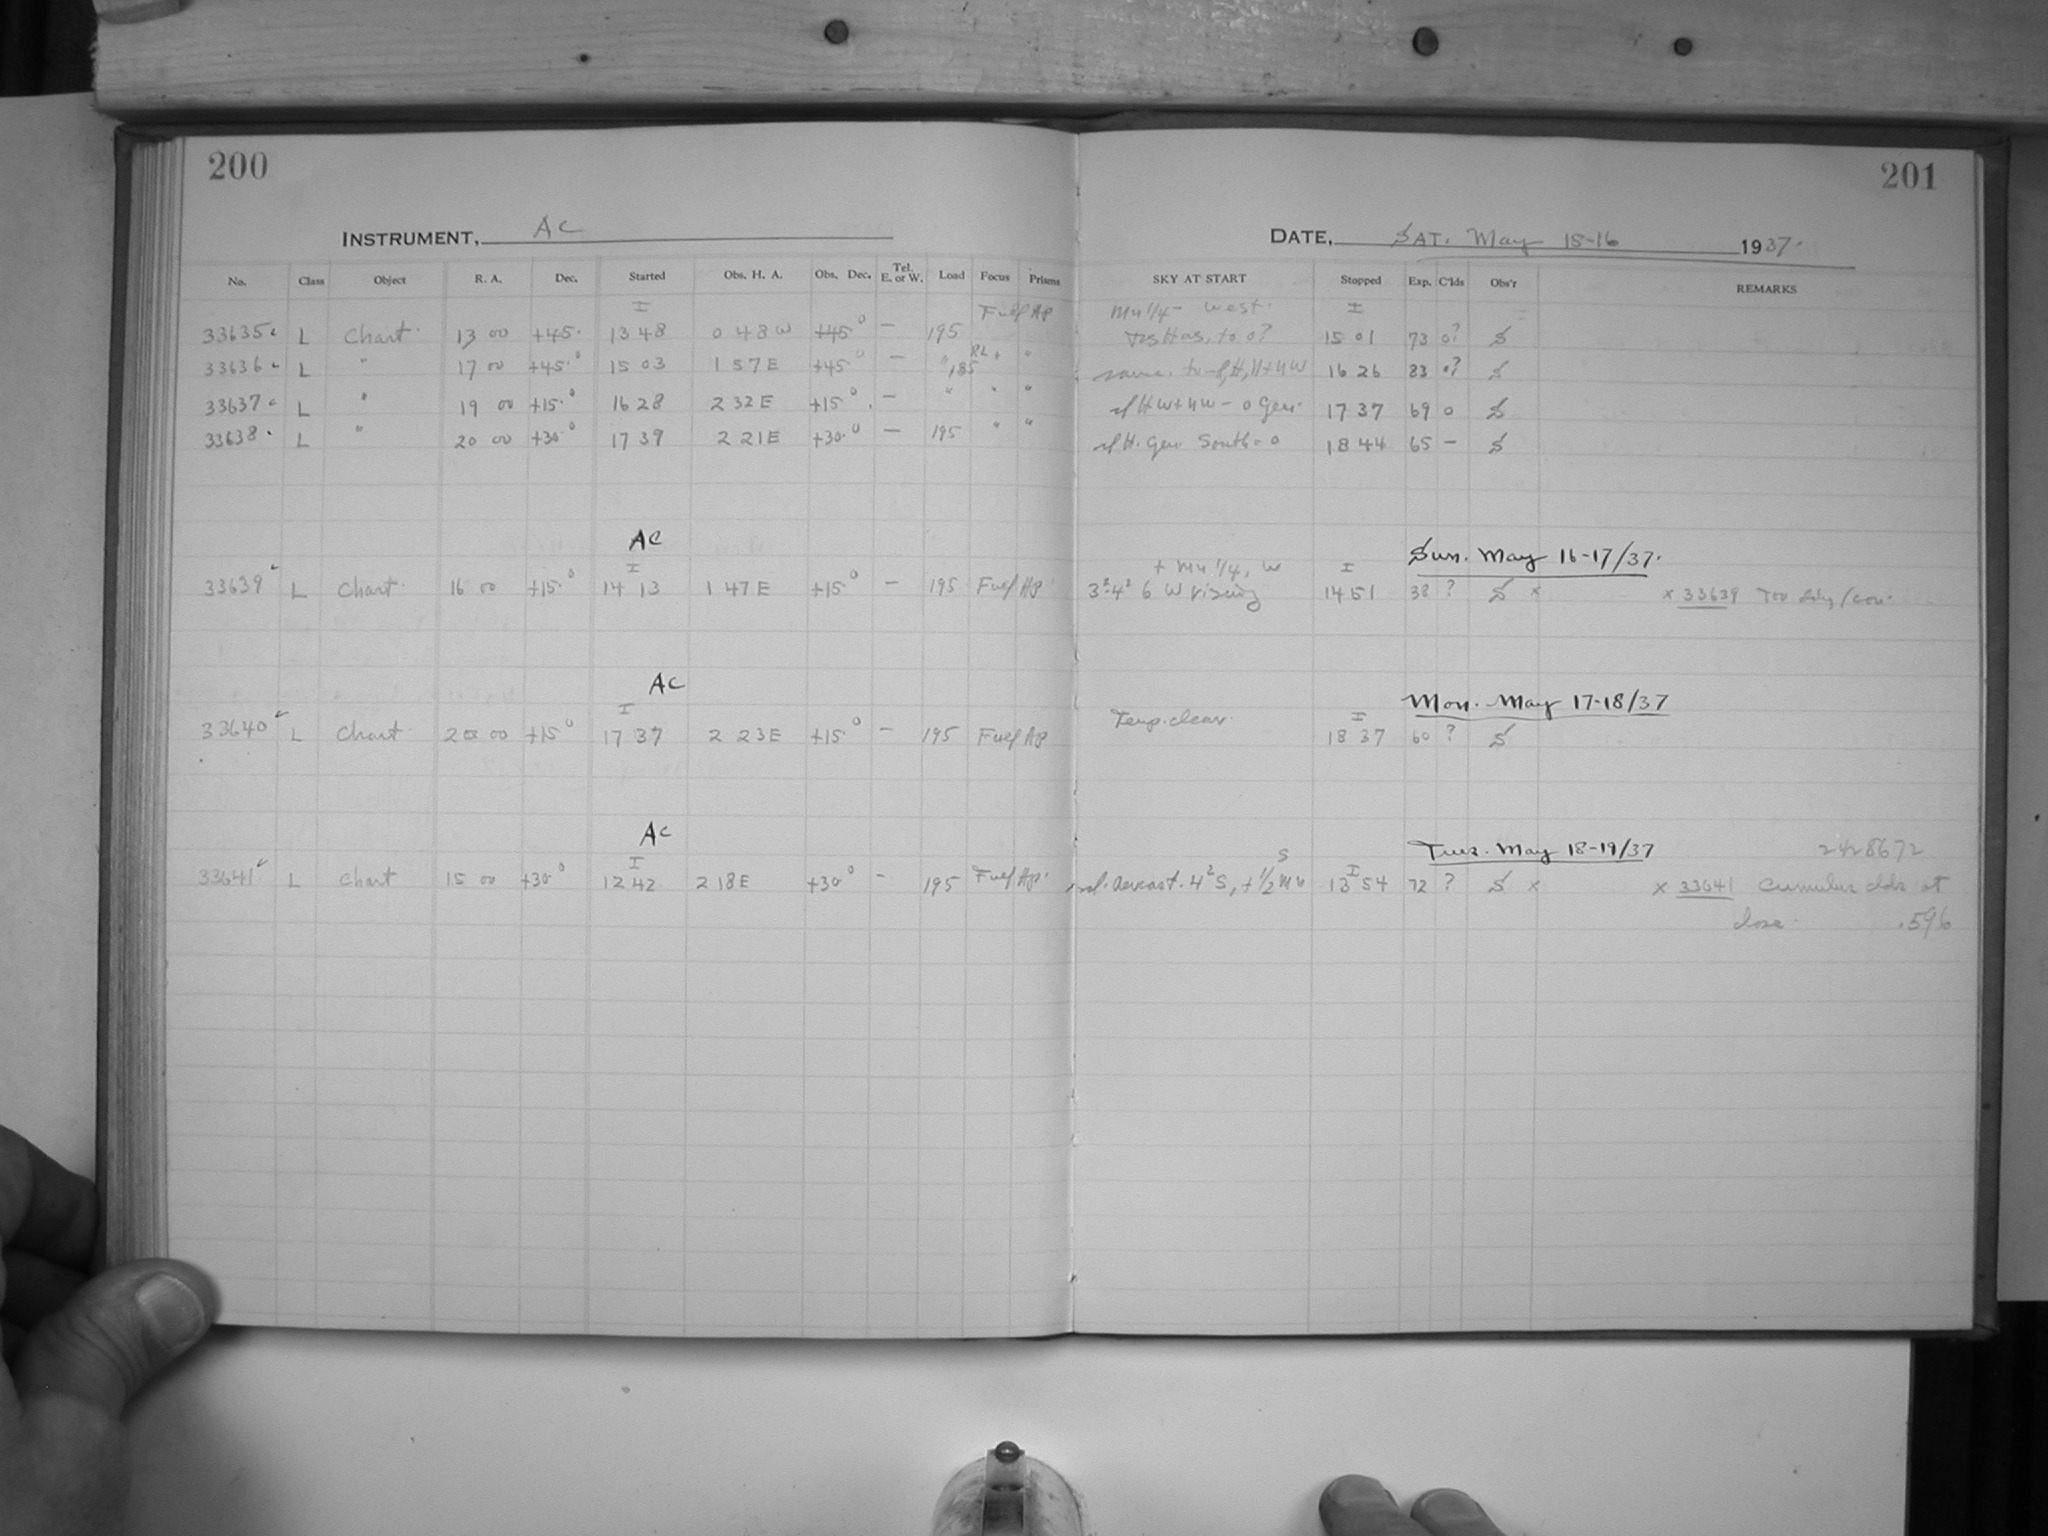 200
201
INSTRUMENT, AC
DATE, SAT. May 15-16 1937.
No. Class Object R. A. Dec. Started Obs. H. A. Obs. Dec. Tel. E. or W. Load Focus Prisms SKY AT START Stopped Exp. C'lds Obs'r REMARKS
I Full Ap Mn 1/4 - west. I
33635 L Chart. 13 00 +45. 13 48 0 48 W +45° — 195 to 0? 15 01 73 0? S
33636 L " 17 00 +45.° 15 03 1 57 E +45° — " 185 " same. to 16 26 83 0? S
33637 L " 19 00 +15.° 16 28 2 32 E +15° — " " " W + NW - 0 Gen. 17 37 69 0 S
33638 L " 20 00 +30.° 17 39 2 21 E +30.° — 195 " " H. Gen. South - 0 18 44 65 — S
AC Sun. May 16-17/37.
I + Mn 1/4, W I
33639 L Chart. 16 00 +15.° 14 13 1 47 E +15° — 195 Full Ap. 3²-4² 6 W rising 14 51 38 ? S x x 33639 Too
AC Mon. May 17-18/37
I Temp. clear. I
33640 L Chart 20 00 +15° 17 37 2 23 E +15° — 195 Full Ap 18 37 60 ? S
AC Tues. May 18-19/37 2428672
I S I
33641 L Chart 15 00 +30° 12 42 2 18 E +30° - 195 Full Ap. overcast. 4² S, + 1/2 Mn 13 54 72 ? S x x 33641 Cumulus clds at
close. .596